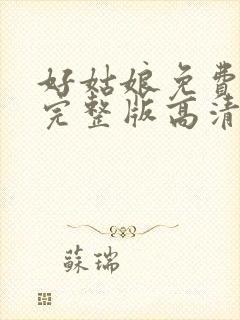 好姑娘免費
完整版高清
蘇瑞